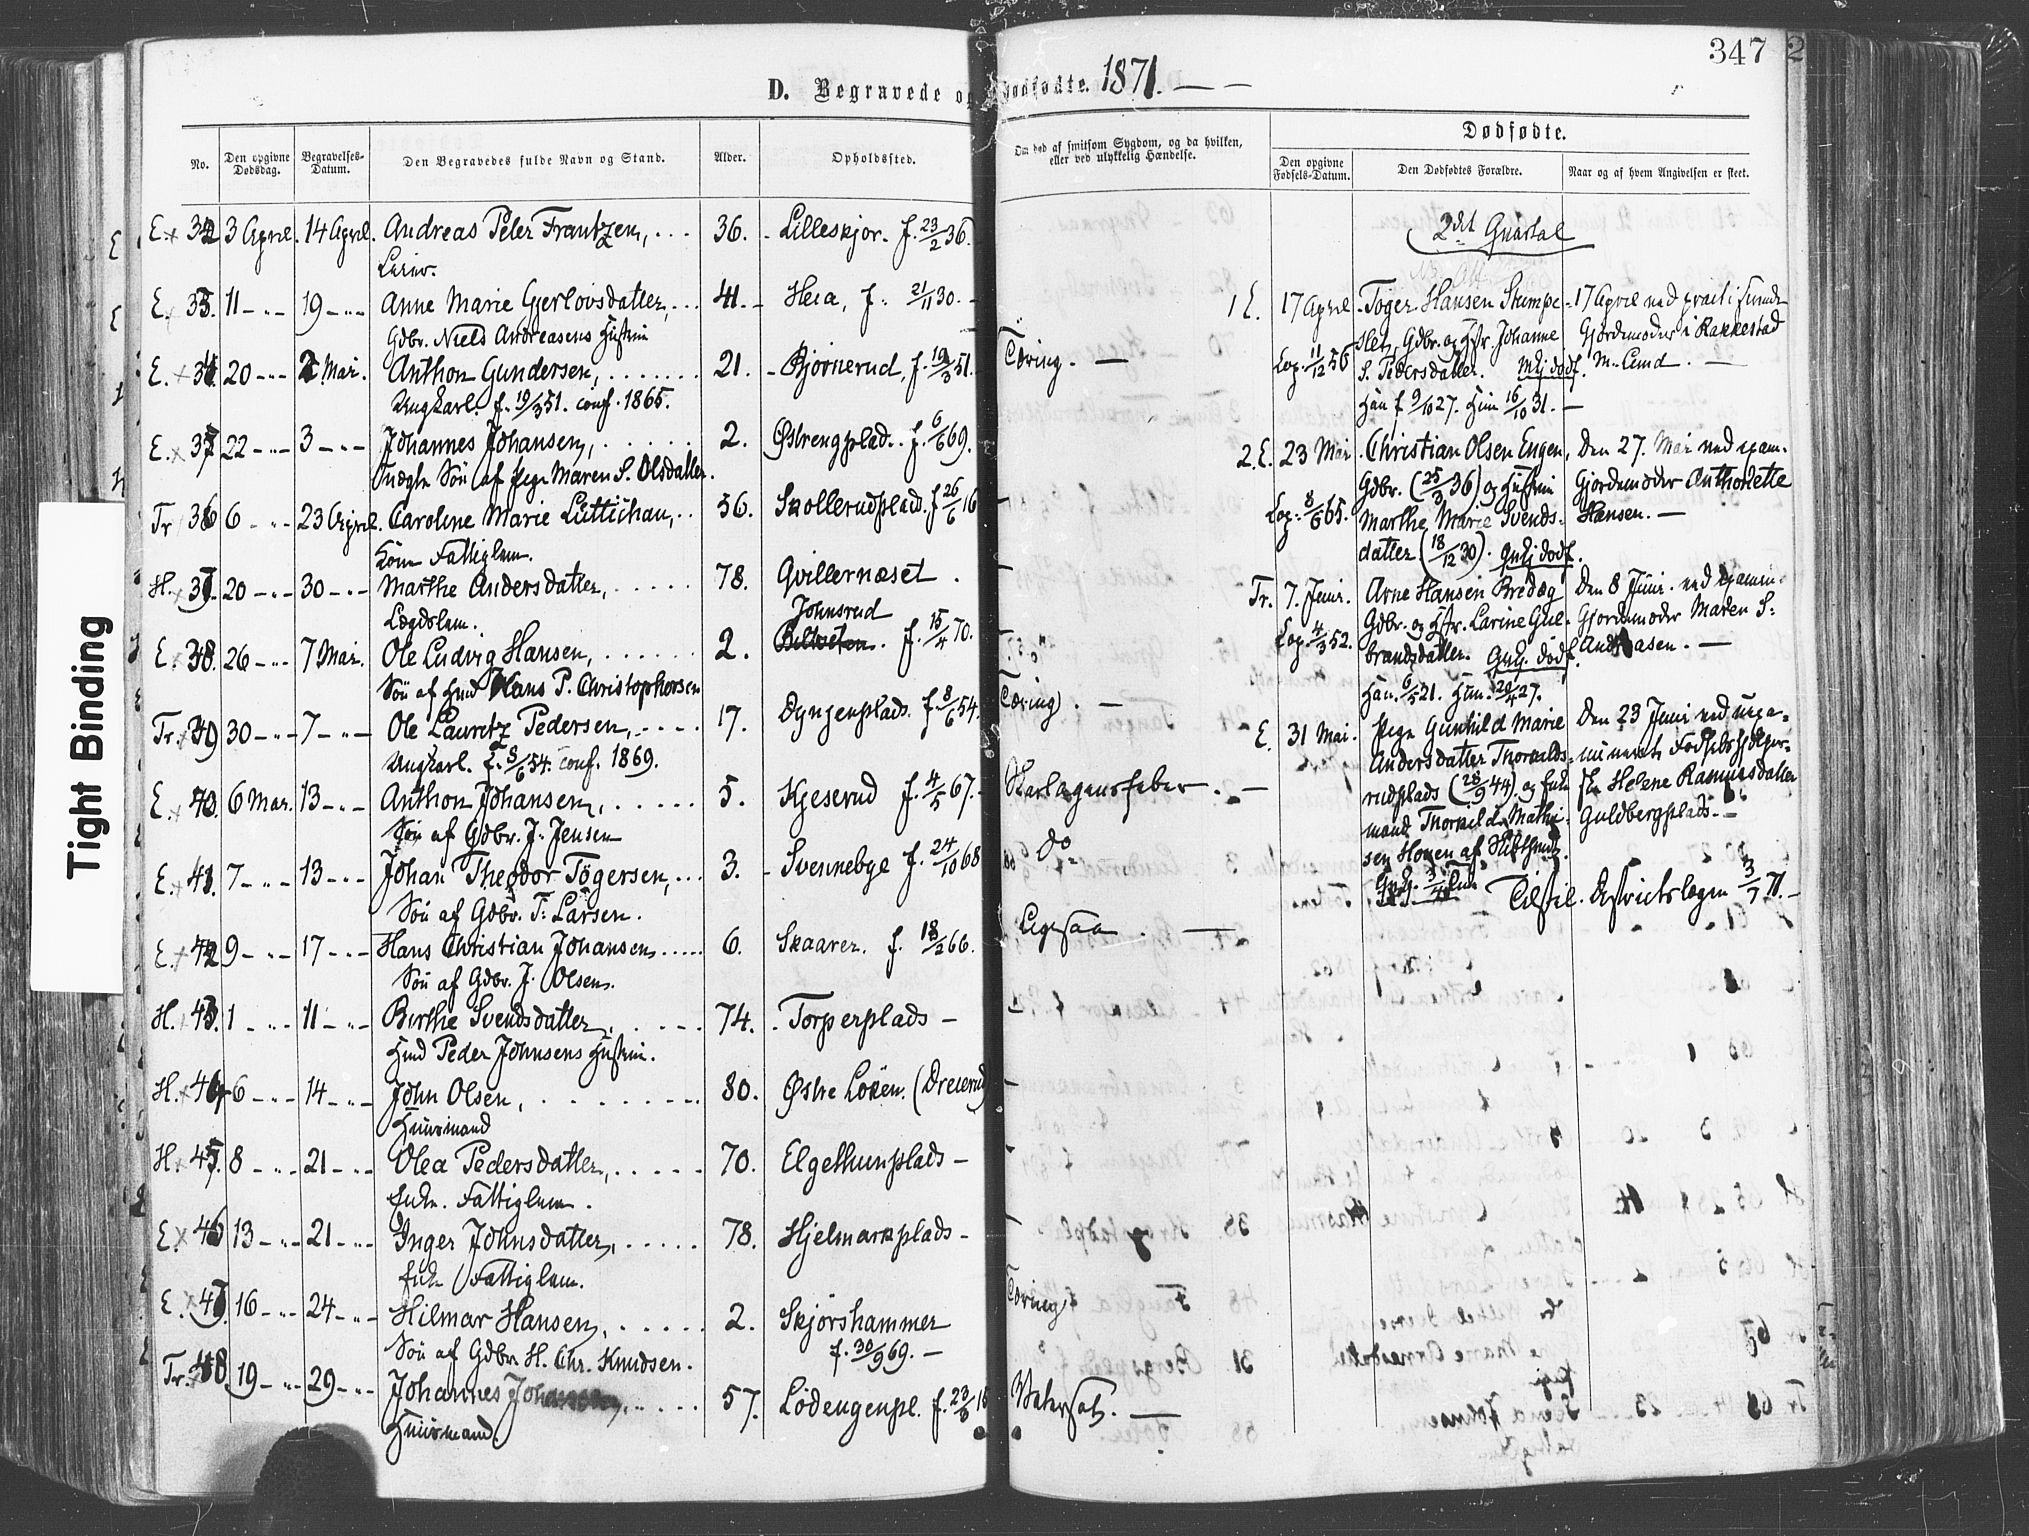 347
2
D. Begravede og Dødfødte. 1871. — —
No.
Den opgivne Dødsdag.
Begravelses-Datum.
Den Begravedes fulde Navn og Stand.
Alder.
Opholdssted.
Om død af smitsom Sygdom, og da hvilken, eller ved ulykkelig Hændelse.
Dødfødte.
Den opgivne Fødsels-Datum.
Den Dødfødtes Forældre.
Naar og af hvem Angivelsen er skeet.
Tight Binding
E. × 32 3 April. 14 April. Andreas Peter Frantzen, . . . 36. - Lilleskjør. f. 23/2 36.
E. × 33. 11 - " - 19 - " - Anne Marie Gjerlovsdatter, . . . 41. - Heia, f. 21/11 30. -
Gdbr. Niels Andreasens Hustru
E. × 34. 20 - " - 2 Mai. Anthon Gundersen, . . . . . . . 21. - Bjørnerud, f. 19/3 51. Tæring. —
Ungkarl. f. 19/3 51. conf. 1865.
E. × 35 22 - " - 3 - " - Johannes Johansen, . . . . . . 2. Østrengplad. f. 6/6 69.
uægte Søn af Pige Maren S. Olsdatter.
Tr. 36 6 - " - 23 April. Caroline Marie Lüttichau, . . 56. Skollerudplad. f. 26/6 16
Fattiglem.
H. × 37. 20 - " - 30 - " - Marthe Andersdatter, . . . . . 78. Gvillernæset . —
Lægdslem.
Johnsrud
E. × 38. 26 - " - 7 Mai. Ole Ludvig Hansen, . . . . . . 2. f. 15/4 70.
Søn af Hmd Hans P. Christophersen
Tr. × 39 30 - " - 7 - " - Ole Lauretz Pedersen, . . . . . 17. Dynjenplads. f. 8/6 54. Tæring. —
Ungkarl. f. 8/6 54. conf. 1869.
E. × 40. 6 Mai. 13 - " - Anthon Johansen, . . . . . . 5. Kjeserud f. 4/5 67. - Skarlagensfeber. —
Søn af Gdbr. J. Jensen
E. × 41. 7 - " - 13 - " - Johan Theodor Tøgersen, . . . 3. - Svennebye f. 24/10 68 do
Søn af Gdbr. T. Larsen.
E. × 42 9 - " - 17 - " - Hans Christian Johansen . . . . . 6. Skaarer. f. 18/2 66. Ligesaa . —
Søn af Gdbr. J. Olsen.
H. × 43. 1 - " - 11 - " - Birthe Svendsdatter, . . . . . 74. . Torperplads —
Hmd Peder Johnsens Hustru.
H. × 44 6 - " - 14 - " - John Olsen, . . . . . . . . 80. Østre Løken. (Dreierud)
Huusmand
H. × 45. 8 - " - 21 - " - Olea Pedersdatter, . . . . . . 70. Elgethunplads —
Enke. Fattiglem .
E. × 46 13 - " - 21 - " - Inger Johnsdatter, . . . . . 78. Hjelmarkplads —
Enke Fattiglem.
E. × 47. 16 - " - 24 - " - Hilmar Hansen, . . . . . . 2. Skjørshammer Tæring
Søn af Gdbr. H. Chr. Knudsen. f. 30/9 69. —
Tr. × 48. 19 - " - 29 - " - Johannes Johansen, . . . . . 57. Lødengenpl. f. 23/8 Vatersot. —
Huusmand.
2det Quartal
1 E. 17 April Tøger Hansen Stumpe-
slet, Gdbr. og Hstr. Johanne
S. Pedersdatter.
Han f 9/10 27. Hun 16/10 31. —
Cop. 11/12 56
17 April ved
Gjordemoder i Rakkestad
M. Lund. —
2. E. 23 Mai Christian Olsen Engen,
Gdbr. (25/3 36) og Hustru
Marthe Marie Svends-
datter (18/12 30).
Cop. 8/6 65.
Den 27. Mai ved exam.
Gjordemoder Anthonette
Hansen. —
Tr. 7. Juni. Arne Hansen Bredæg
Gdbr. og Hstr. Larine Gul-
brandsdatter.
Han. 6/5 21. Hun. 20/4 27.
Cop. 4/3 52.
Den 8 Juni. ved examin.
Gjordemoder Maren S.
Andreasen. —
E. 31 Mai. Pige Gunhild Marie
Andersdatter Thorkilds-
rudplads (28/9 44). og Enke-
mand Thorkild Mathi-
sen af
Den 23 Juni ved uexa-
mineret Fødselshjelper-
ske Helene Rasmusdatter
Guldbergplads. —
Districtslægen 3/7 71. —